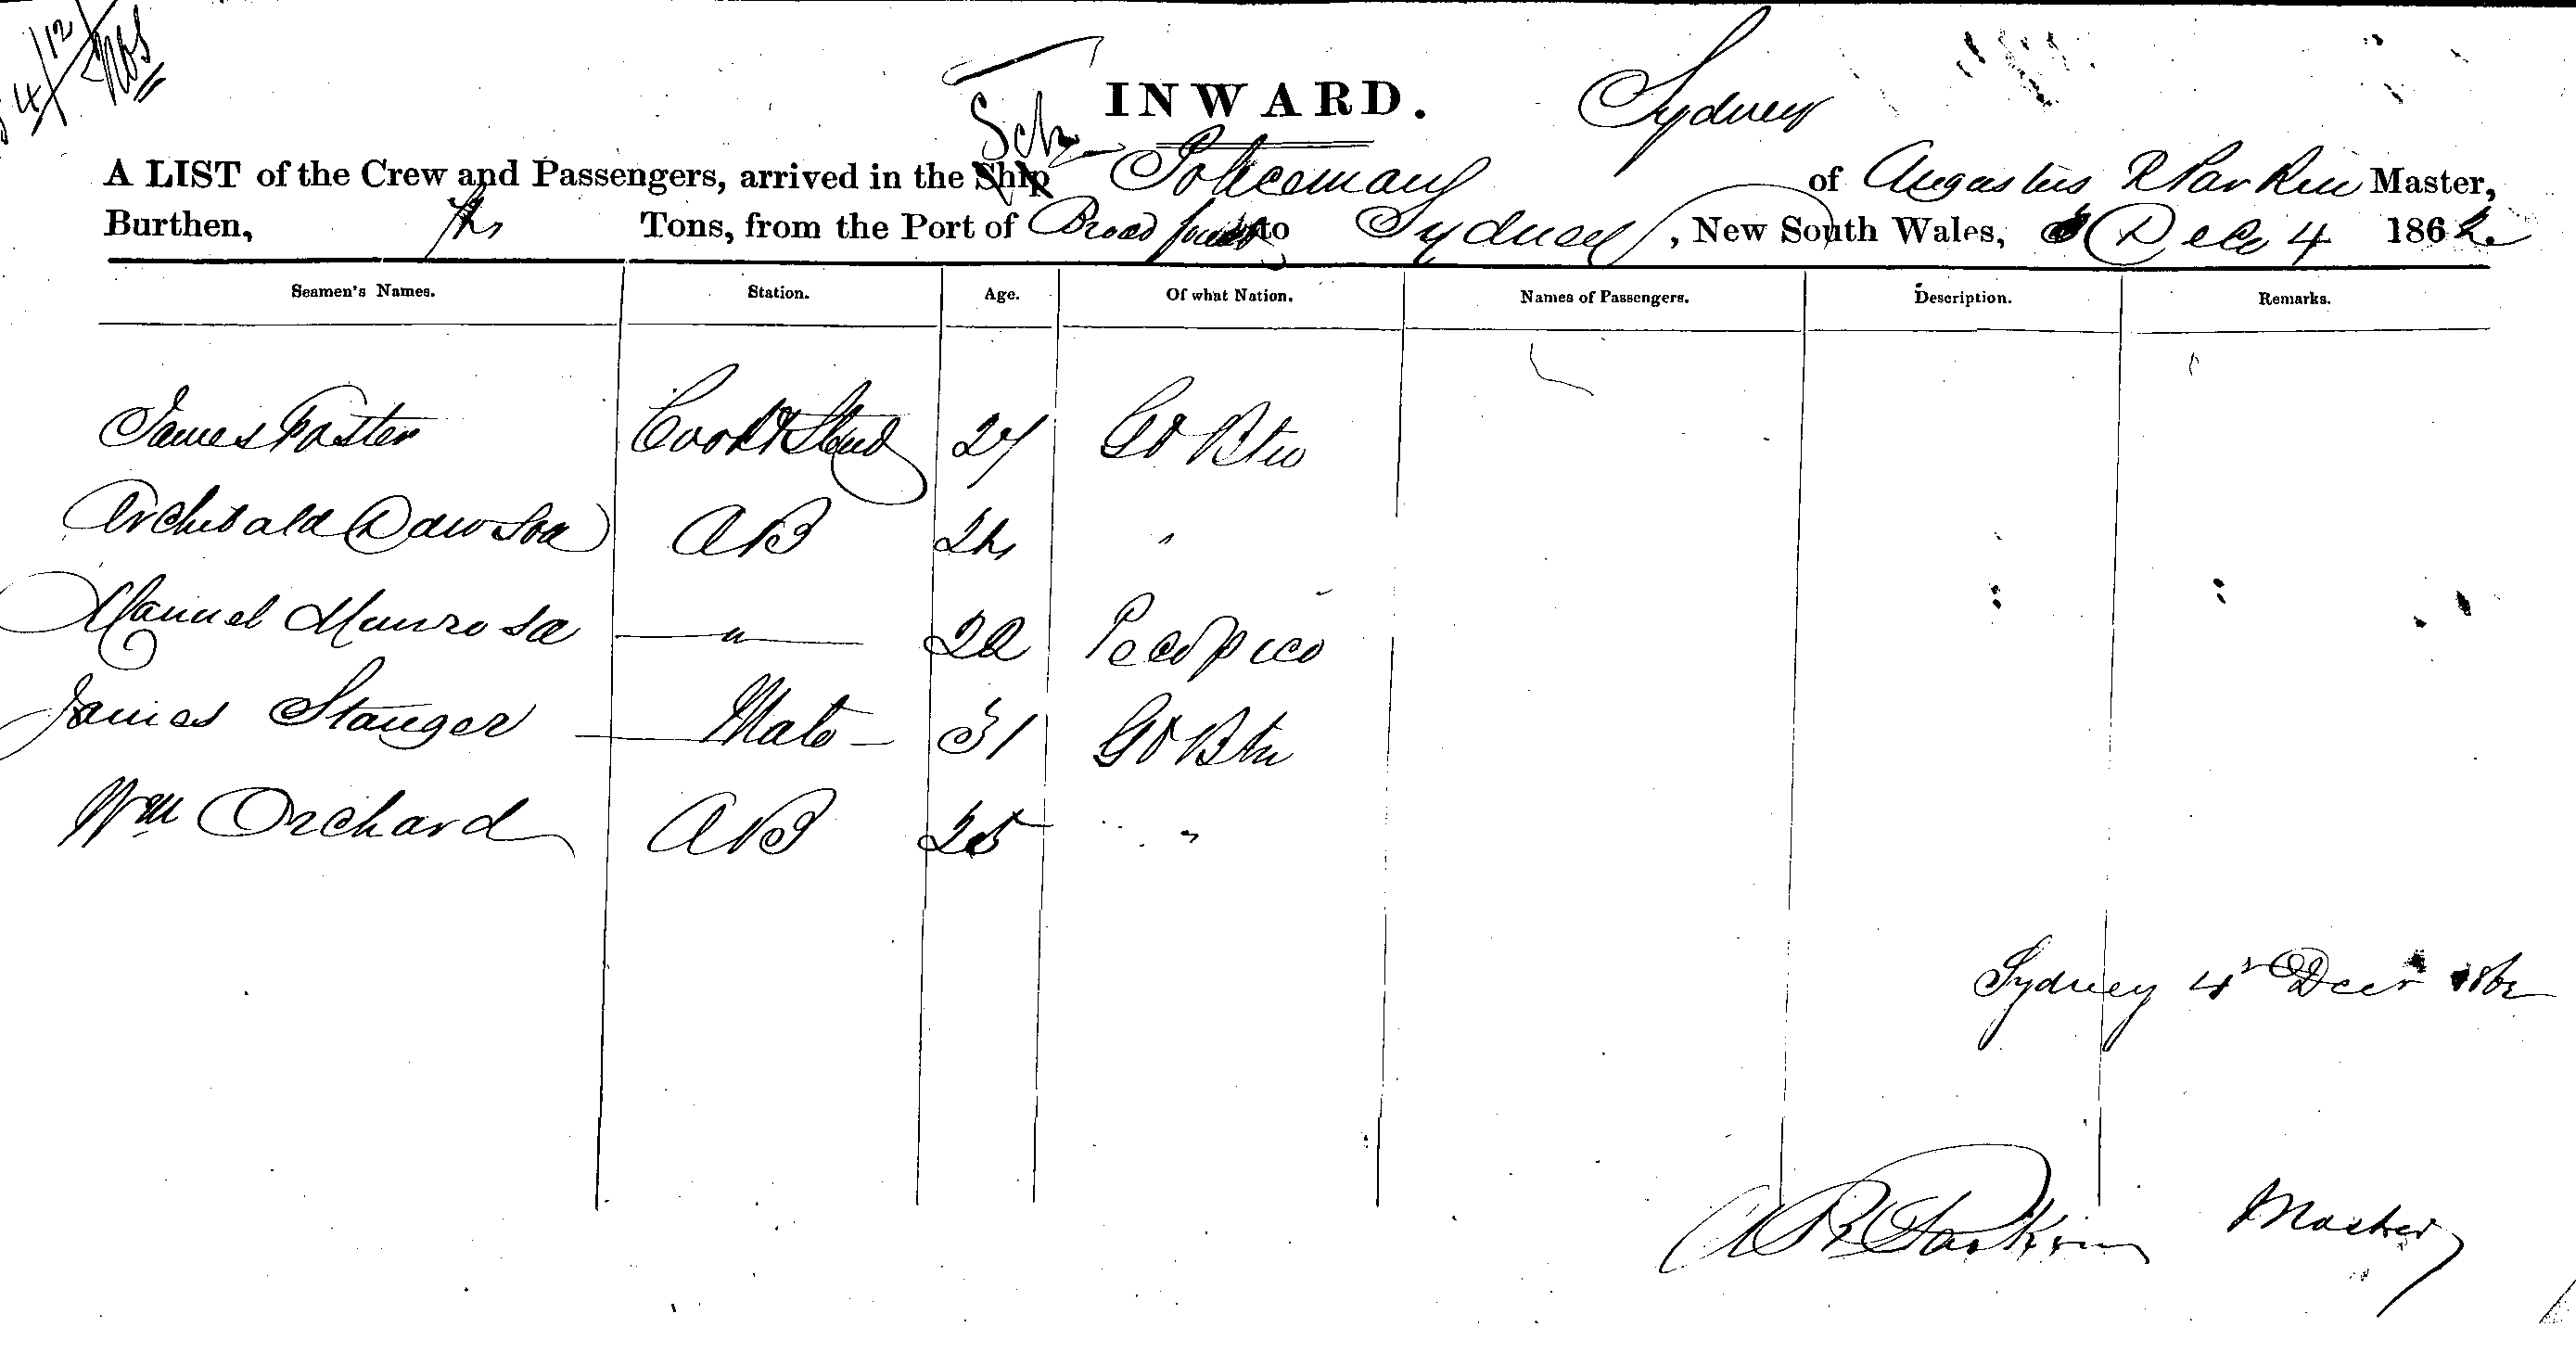 4/12
INWARD.
Sydney
A LIST of the Crew and Passengers, arrived in the Ship Schr Policeman of Augustus R Parkin Master,
Burthen, Tons, from the Port of Broad to Sydney, New South Wales, Decr 4 1862
Seamen's Names. Station. Age. Of what Nation. Names of Passengers. Description. Remarks.
James Foster Cook & Stewd 27 Gt Btn
Archibald Dawson AB 24 "
Manuel Munrosa " 22
James Stanger Mate 31 Gt Btn
Wm Orchard AB 25 "
Sydney 4 Decr 1862
A R Parkin Master